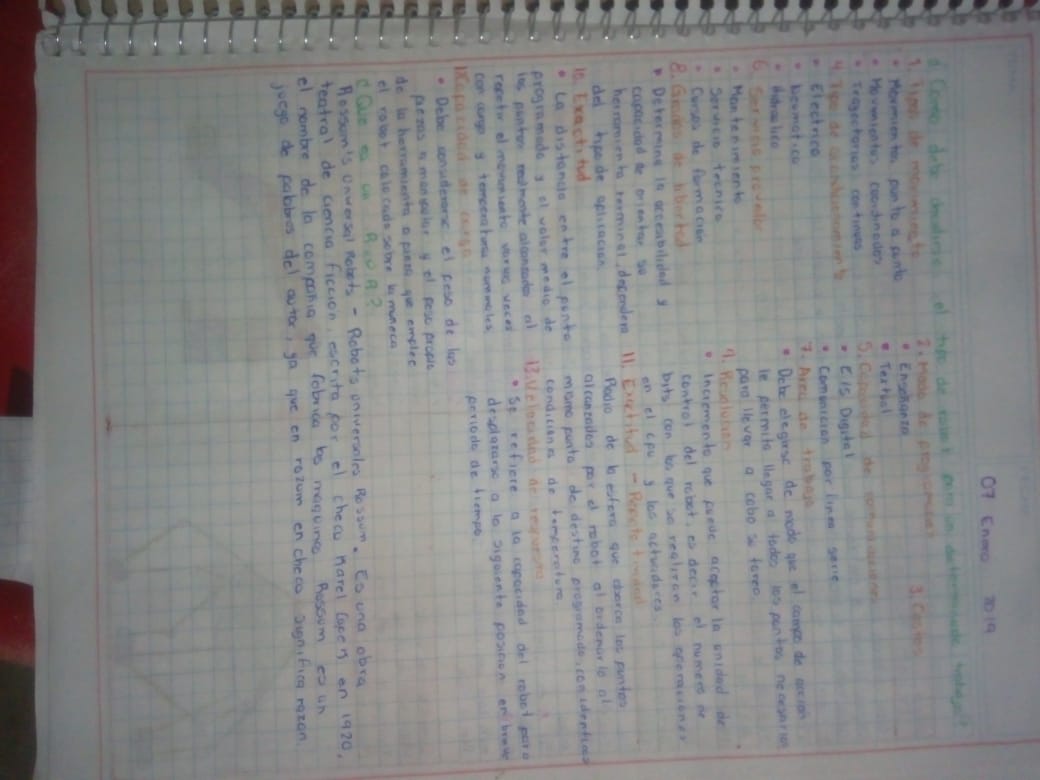 07 Enero 2019
¿Como debe decidirse el tipo de robot para un determinado trabajo?
1. Tipo de movimiento
• Movimiento punto a punto
• Movimientos coordinados
• Trayectorias continuas
2. Modo de programación
• Enseñanza
• Textual
3. Costos
4. Tipo de accionamiento
• Electrico
• Neumatico
• Hidraulico
5. Capacidad de comunicaciones
• E/S Digital
• Comunicacion por linea serie
6. Servicio proveedor
• Mantenimiento
• Servicio tecnico
• Cursos de formación
7. Area de trabajo
• Debe elegirse de modo que el campo de acción
le permita llegar a todos los puntos necesarios
para llevar a cabo su tarea
8. Grados de libertad
• Determina la accesibilidad y
capacidad de orientar su
herramienta terminal, dependera
del tipo de aplicacion
9. Resolucion
• Incremento que puede aceptar la unidad de
control del robot, es decir el numero de
bits con los que se realizan las operaciones
en el cpu y las actividades.
10. Exactitud
• La distancia entre el punto
programado y el valor medio de
los puntos realmente alcanzados al
repetir el movimiento varias veces
con carga y temperatura nominales
11. Exactitud - Repetetividad
Radio de la esfera que abarca los puntos
alcanzados por el robot al ordenarlo al
mismo punto de destino programado, con identicas
condiciones de temperatura
12. Capacidad de carga
• Debe considerarse el peso de las
piezas a manipular y el peso propio
de la herramienta o pieza que emplee
el robot colocada sobre la muñeca
13. Velocidad de respuesta
• Se refiere a la capacidad del robot para
desplazarse a la siguiente posicion en breve
periodo de tiempo
¿Que es la R.U.R?
Rossum's Universal Robots - Robots universales Rossum. Es una obra
teatral de ciencia ficcion, escrita por el checo Karel Capek en 1920,
el nombre de la compañia que fabrica las maquinas Rossum es un
juego de palabras del autor, ya que en rozum en checo significa razon.